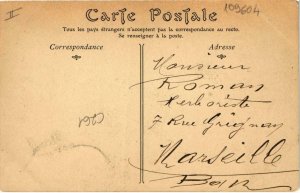 II
Carte Postale
109604
Tous les pays étrangers n'acceptent pas la correspondance au recto.
Se renseigner à la poste.
Correspondance
Adresse
Monsieur
Roman
Herboriste
7 Rue Grignan
Marseille